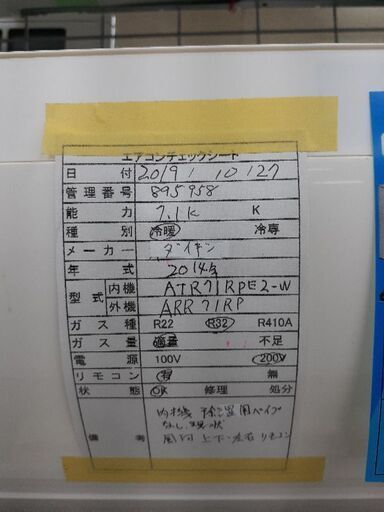 エアコンチェックシート
日 付 2019 10 27
管理番号 895958
能 力 7.1K K
種 別 冷暖 冷専
メーカー ダイキン
年 式 2014年
型式 内機 ATR71RPE2-W
外機 ARR71RP
ガス種 R22 R32 R410A
ガス量 適量 不足
電 源 100V 200V
リモコン 有 無
状 態 OK 修理 処分
備 考 内機 除湿用パイプ
なし 現状
風向 上下・左右 リモコン